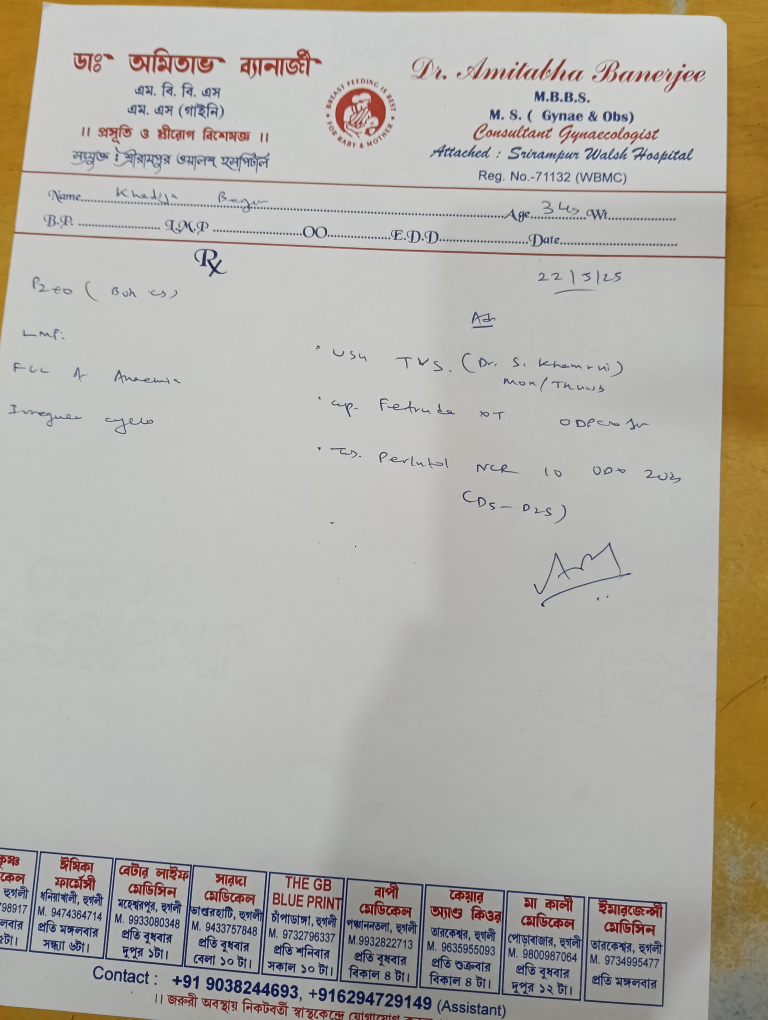 ডাঃ অমিতাভ ব্যানার্জী
এম. বি. বি. এস
এম. এস (গাইনি)
।। প্রসূতি ও স্ত্রীরোগ বিশেষজ্ঞ ।।
সংযুক্ত : শ্রীরামপুর ওয়ালশ হসপিটাল
BREAST FEEDING IS BEST
FOR BABY & MOTHER
Dr. Amitabha Banerjee
M.B.B.S.
M. S. ( Gynae & Obs)
Consultant Gynaecologist
Attached : Srirampur Walsh Hospital
Reg. No.-71132 (WBMC)
Name Khadija Begum Age 34 Wt
B.P. L.M.P OO E.D.D Date
Rx
22/5/25
P2+0 (Both cs)
LMP:
Adv
Anaemia
Irregular cycles
USG TVS. (Dr. S. Khamrui)
Mon/Thurs
Cap. XT
NCR 10
(D5 - D25)
মেডিকেল
হুগলী
98917
ঈষিকা
ফার্মেসী
ধনিয়াখালী, হুগলী
M. 9474364714
প্রতি মঙ্গলবার
সন্ধ্যা ৬টা।
বেটার লাইফ
মেডিসিন
মহেশ্বরপুর, হুগলী
M. 9933080348
প্রতি বুধবার
দুপুর ১টা।
সারদা
মেডিকেল
ভাণ্ডারহাটি, হুগলী
M. 9433757848
প্রতি বুধবার
বেলা ১০ টা।
THE GB
BLUE PRINT
চাঁপাডাঙ্গা, হুগলী
M. 9732796337
প্রতি শনিবার
সকাল ১০ টা।
বাপী
মেডিকেল
পঞ্চাননতলা, হুগলী
M.9932822713
প্রতি বুধবার
বিকাল ৪ টা।
কেয়ার
অ্যাণ্ড কিওর
তারকেশ্বর, হুগলী
M. 9635955093
প্রতি শুক্রবার
বিকাল ৪ টা।
মা কালী
মেডিকেল
পোড়াবাজার, হুগলী
M. 9800987064
প্রতি বুধবার
দুপুর ১২ টা।
ইমারজেন্সী
মেডিসিন
তারকেশ্বর, হুগলী
M. 9734995477
প্রতি মঙ্গলবার
Contact : +91 9038244693, +916294729149 (Assistant)
।। জরুরী অবস্থায় নিকটবর্তী স্বাস্থ্যকেন্দ্রে যোগাযোগ